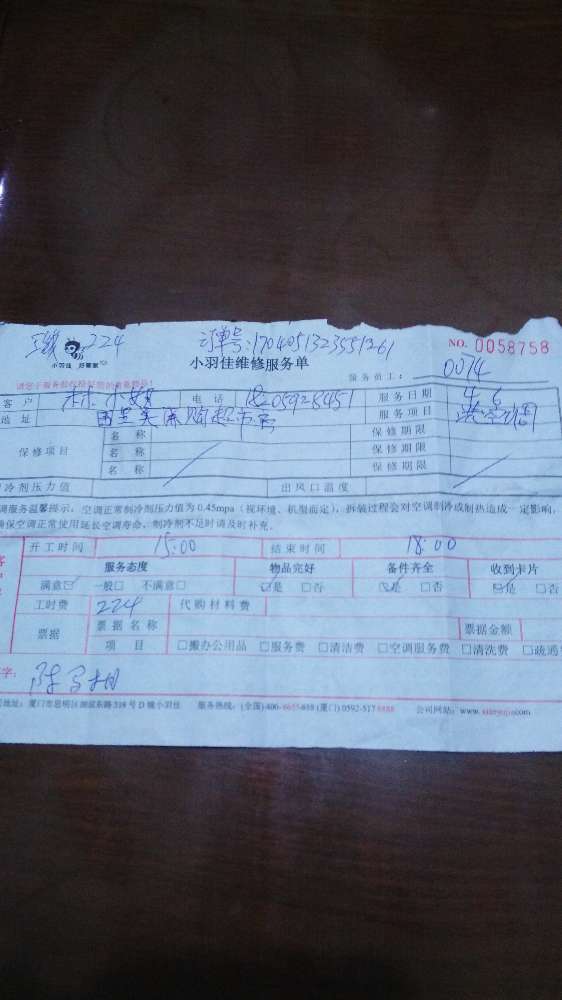 224 订单号:1704051323551261
小羽佳 好管家 小羽佳维修服务单 NO. 0058758
服务员工: 0074
客户 林小姐 电话 18205928451 服务日期 4.6
地址 服务项目 装空调
保修项目 名称 保修期限
名称 保修期限
名称 保修期限
冷剂压力值 出风口温度
调服务温馨提示,空调正常制冷剂压力值为0.45mpa(视环境、机型而定),拆装过程会对空调制冷或制热造成一定影响,
确保空调正常使用延长空调寿命,制冷剂不足时请及时补充.
开工时间 15:00 结束时间 18:00
服务态度 物品完好 备件齐全 收到卡片
满意☑ 一般□ 不满意□ ☑是 □否 ☑是 □否 ☑是 □否
工时费 224 代购材料费
票据 票据名称 票据金额
项目 □搬办公用品 □服务费 □清洁费 □空调服务费 □清洗费 □疏通
字:
地址:厦门市思明区湖滨东路319号D幢小羽佳 服务热线:(全国)400-6655-858(厦门)0592-5178888 公司网站:www.xiaoyujia.com